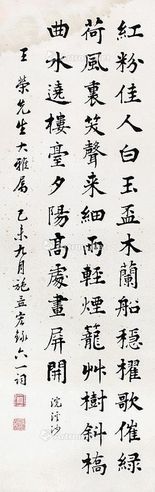 紅粉佳人白玉盃木蘭船穩櫂歌催綠
荷風裏笑聲来細雨輕煙籠艸樹斜橋
曲水遶樓臺夕陽高處畫屏開
浣溪沙
王榮先生大雅屬
乙未九月施孟宏錄六一詞